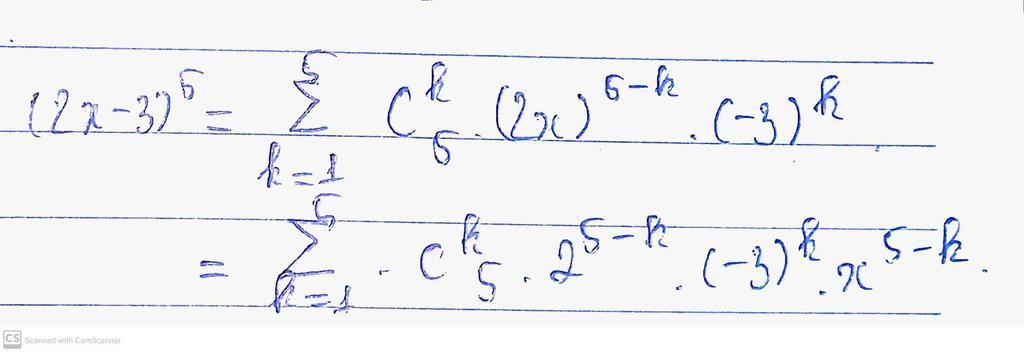 (2x-3)^5 = \sum_{k=1}^{5} C_5^k . (2x)^{5-k} . (-3)^k
= \sum_{k=1}^{5} . C_5^k . 2^{5-k} . (-3)^k . x^{5-k} .
CS Scanned with CamScanner